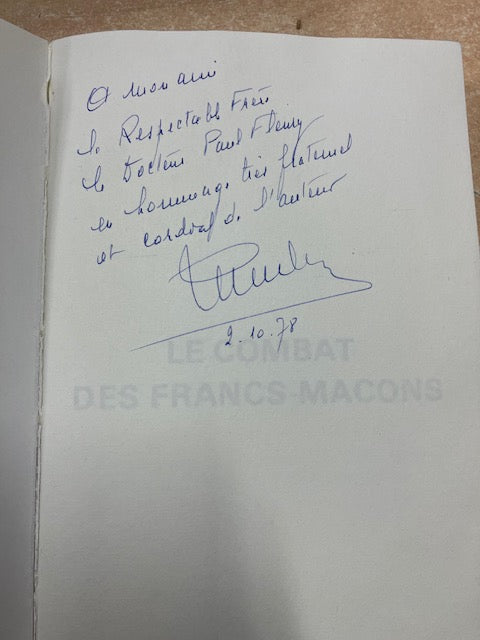 A mon ami
le Respectable Frère
le Docteur Paul Fleury
en hommage très fraternel
et cordial de l'auteur
2.10.78
LE COMBAT
DES FRANCS-MACONS